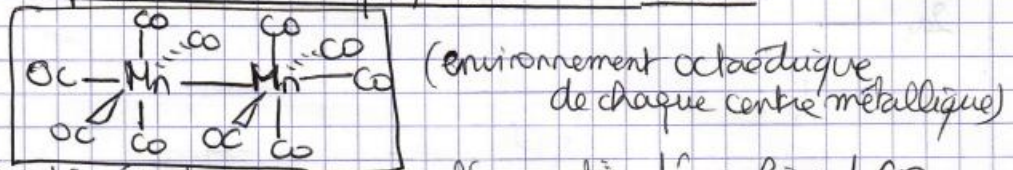 CO CO CO CO
OC Mn Mn CO
OC CO OC CO
(environnement octaédrique
de chaque centre métallique)